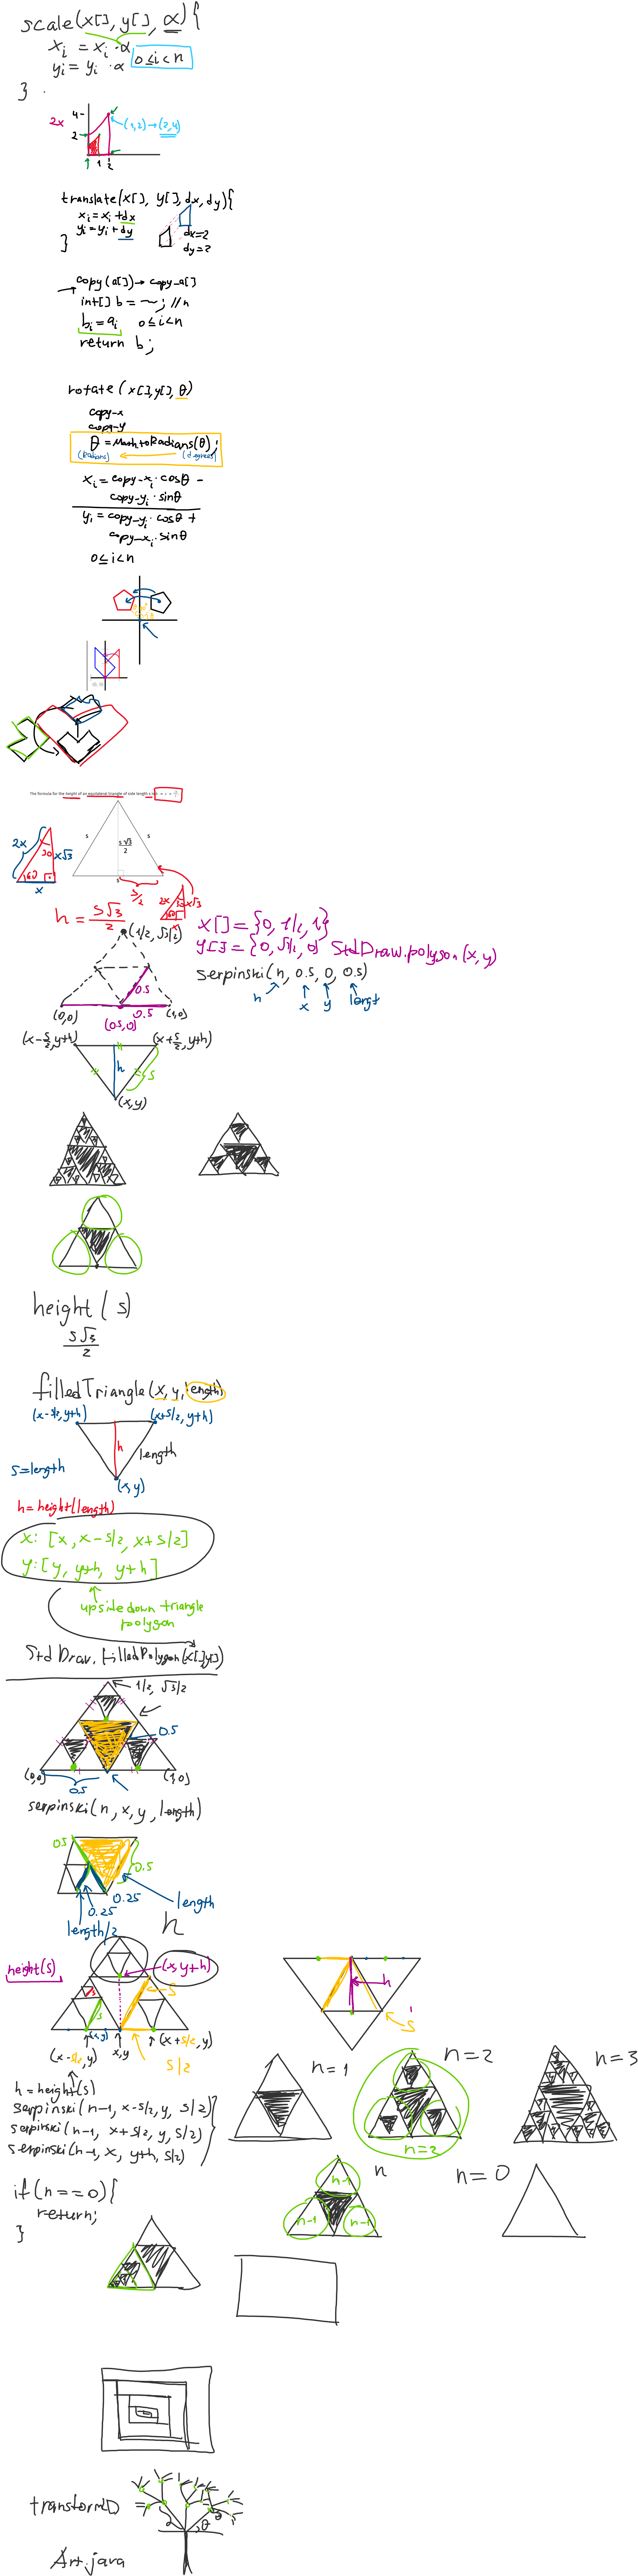 scale(x[], y[], α){
xi = xi · α
yi = yi · α
0≤i<n
}
4
2x
2
1 2
(1,2)→(2,4)
translate(x[], y[], dx, dy){
xi = xi + dx
yi = yi + dy
}
dx=2
dy=2
copy(a[]) → copy-a[]
int[] b = ~; //n
bi = ai 0≤i<n
return b;
rotate(x[], y[], θ)
copy-x
copy-y
θ = Math.toRadians(θ);
(Radians) (degrees)
xi = copy-xi · cosθ -
copy-yi · sinθ
yi = copy-yi · cosθ +
copy-xi · sinθ
0≤i<n
The formula for the height of an equilateral triangle of side length s is
s s
s√3
2
s
s/2
2x 30 x√3
60
x
2x x√3
60
x
h = s√3/2
(1/2, √3/2)
x[] = {0, 1/2, 1}
y[] = {0, √3/2, 0} StdDraw.polygon(x,y)
serpinski(n, 0.5, 0, 0.5)
n x y lengt
0.5
0.5
(0,0) (0.5,0) (1,0)
(x-s/2, y+h) (x+s/2, y+h)
h s
(x,y)
height(s)
s√3
2
filledTriangle(x, y, length)
(x-s/2, y+h) (x+s/2, y+h)
h length
s=length
(x,y)
h=height(length)
x: [x, x-s/2, x+s/2]
y: [y, y+h, y+h]
upside down triangle
polygon
StdDraw.filledPolygon(x[],y[])
1/2, √3/2
0.5
(0,0) (1,0)
0.5
serpinski(n, x, y, length)
0.5
0.5
0.25
0.25
length
length/2
h
height(s)
(x, y+h)
s
s
s
(x,y)
(x-s/2, y) x,y (x+s/2, y)
s/2
h
s
h = height(s)
serpinski(n-1, x-s/2, y, s/2)
serpinski(n-1, x+s/2, y, s/2)
serpinski(n-1, x, y+h, s/2)
n=1
n=2
n=2
n=3
if(n==0){
return;
}
n
n-1
n-1 n-1
n=0
transform2D
θ
Art.java